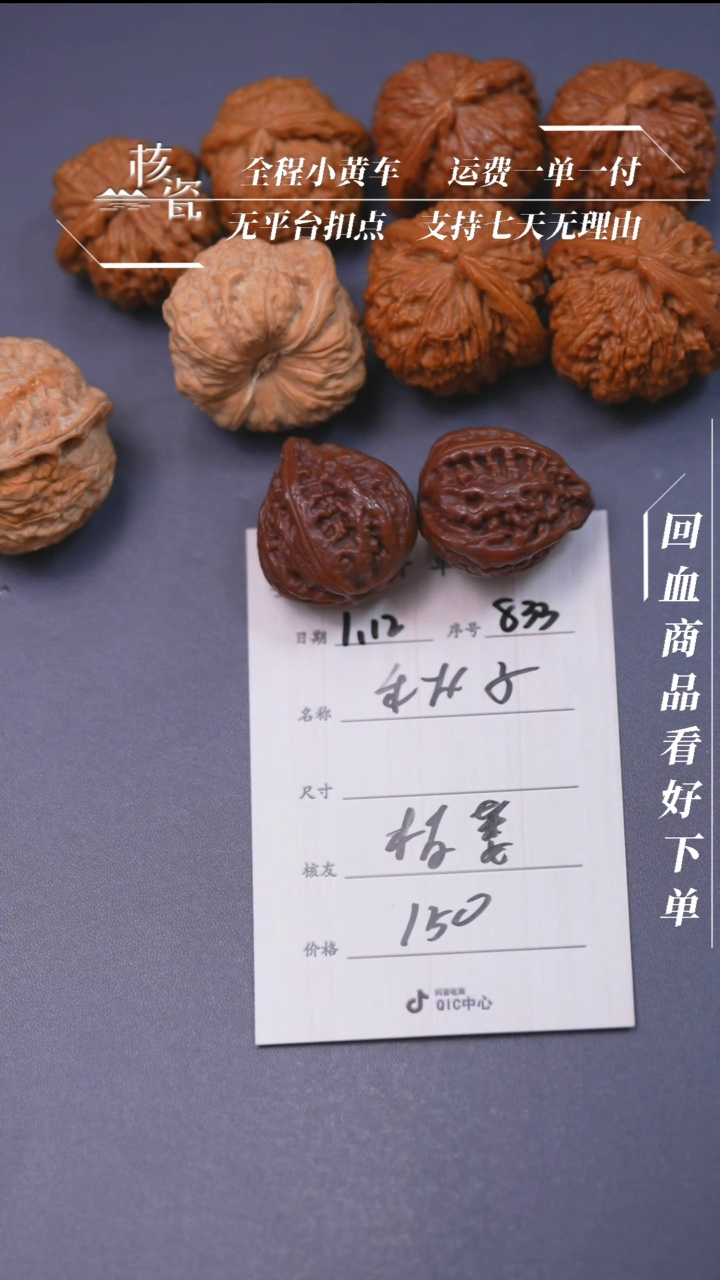 核瓷
全程小黄车 运费一单一付
无平台扣点 支持七天无理由
回血商品看好下单
单
日期 1.12 序号 833
名称
尺寸
核友
价格 150
抖音电商
QIC中心